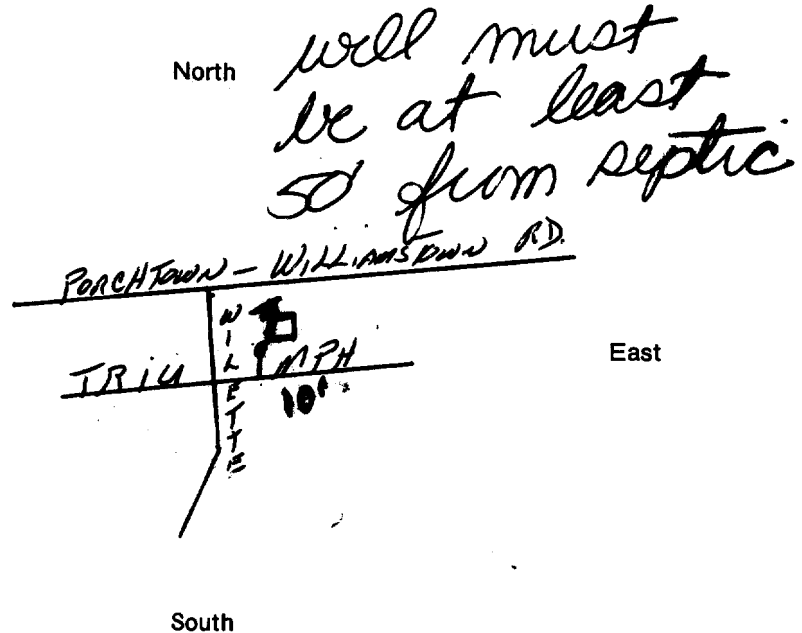 North
well must
be at least
50' from septic
PORCHTOWN - WILLIAMSTOWN RD.
WILETTE
TRIUMPH
10'
East
South